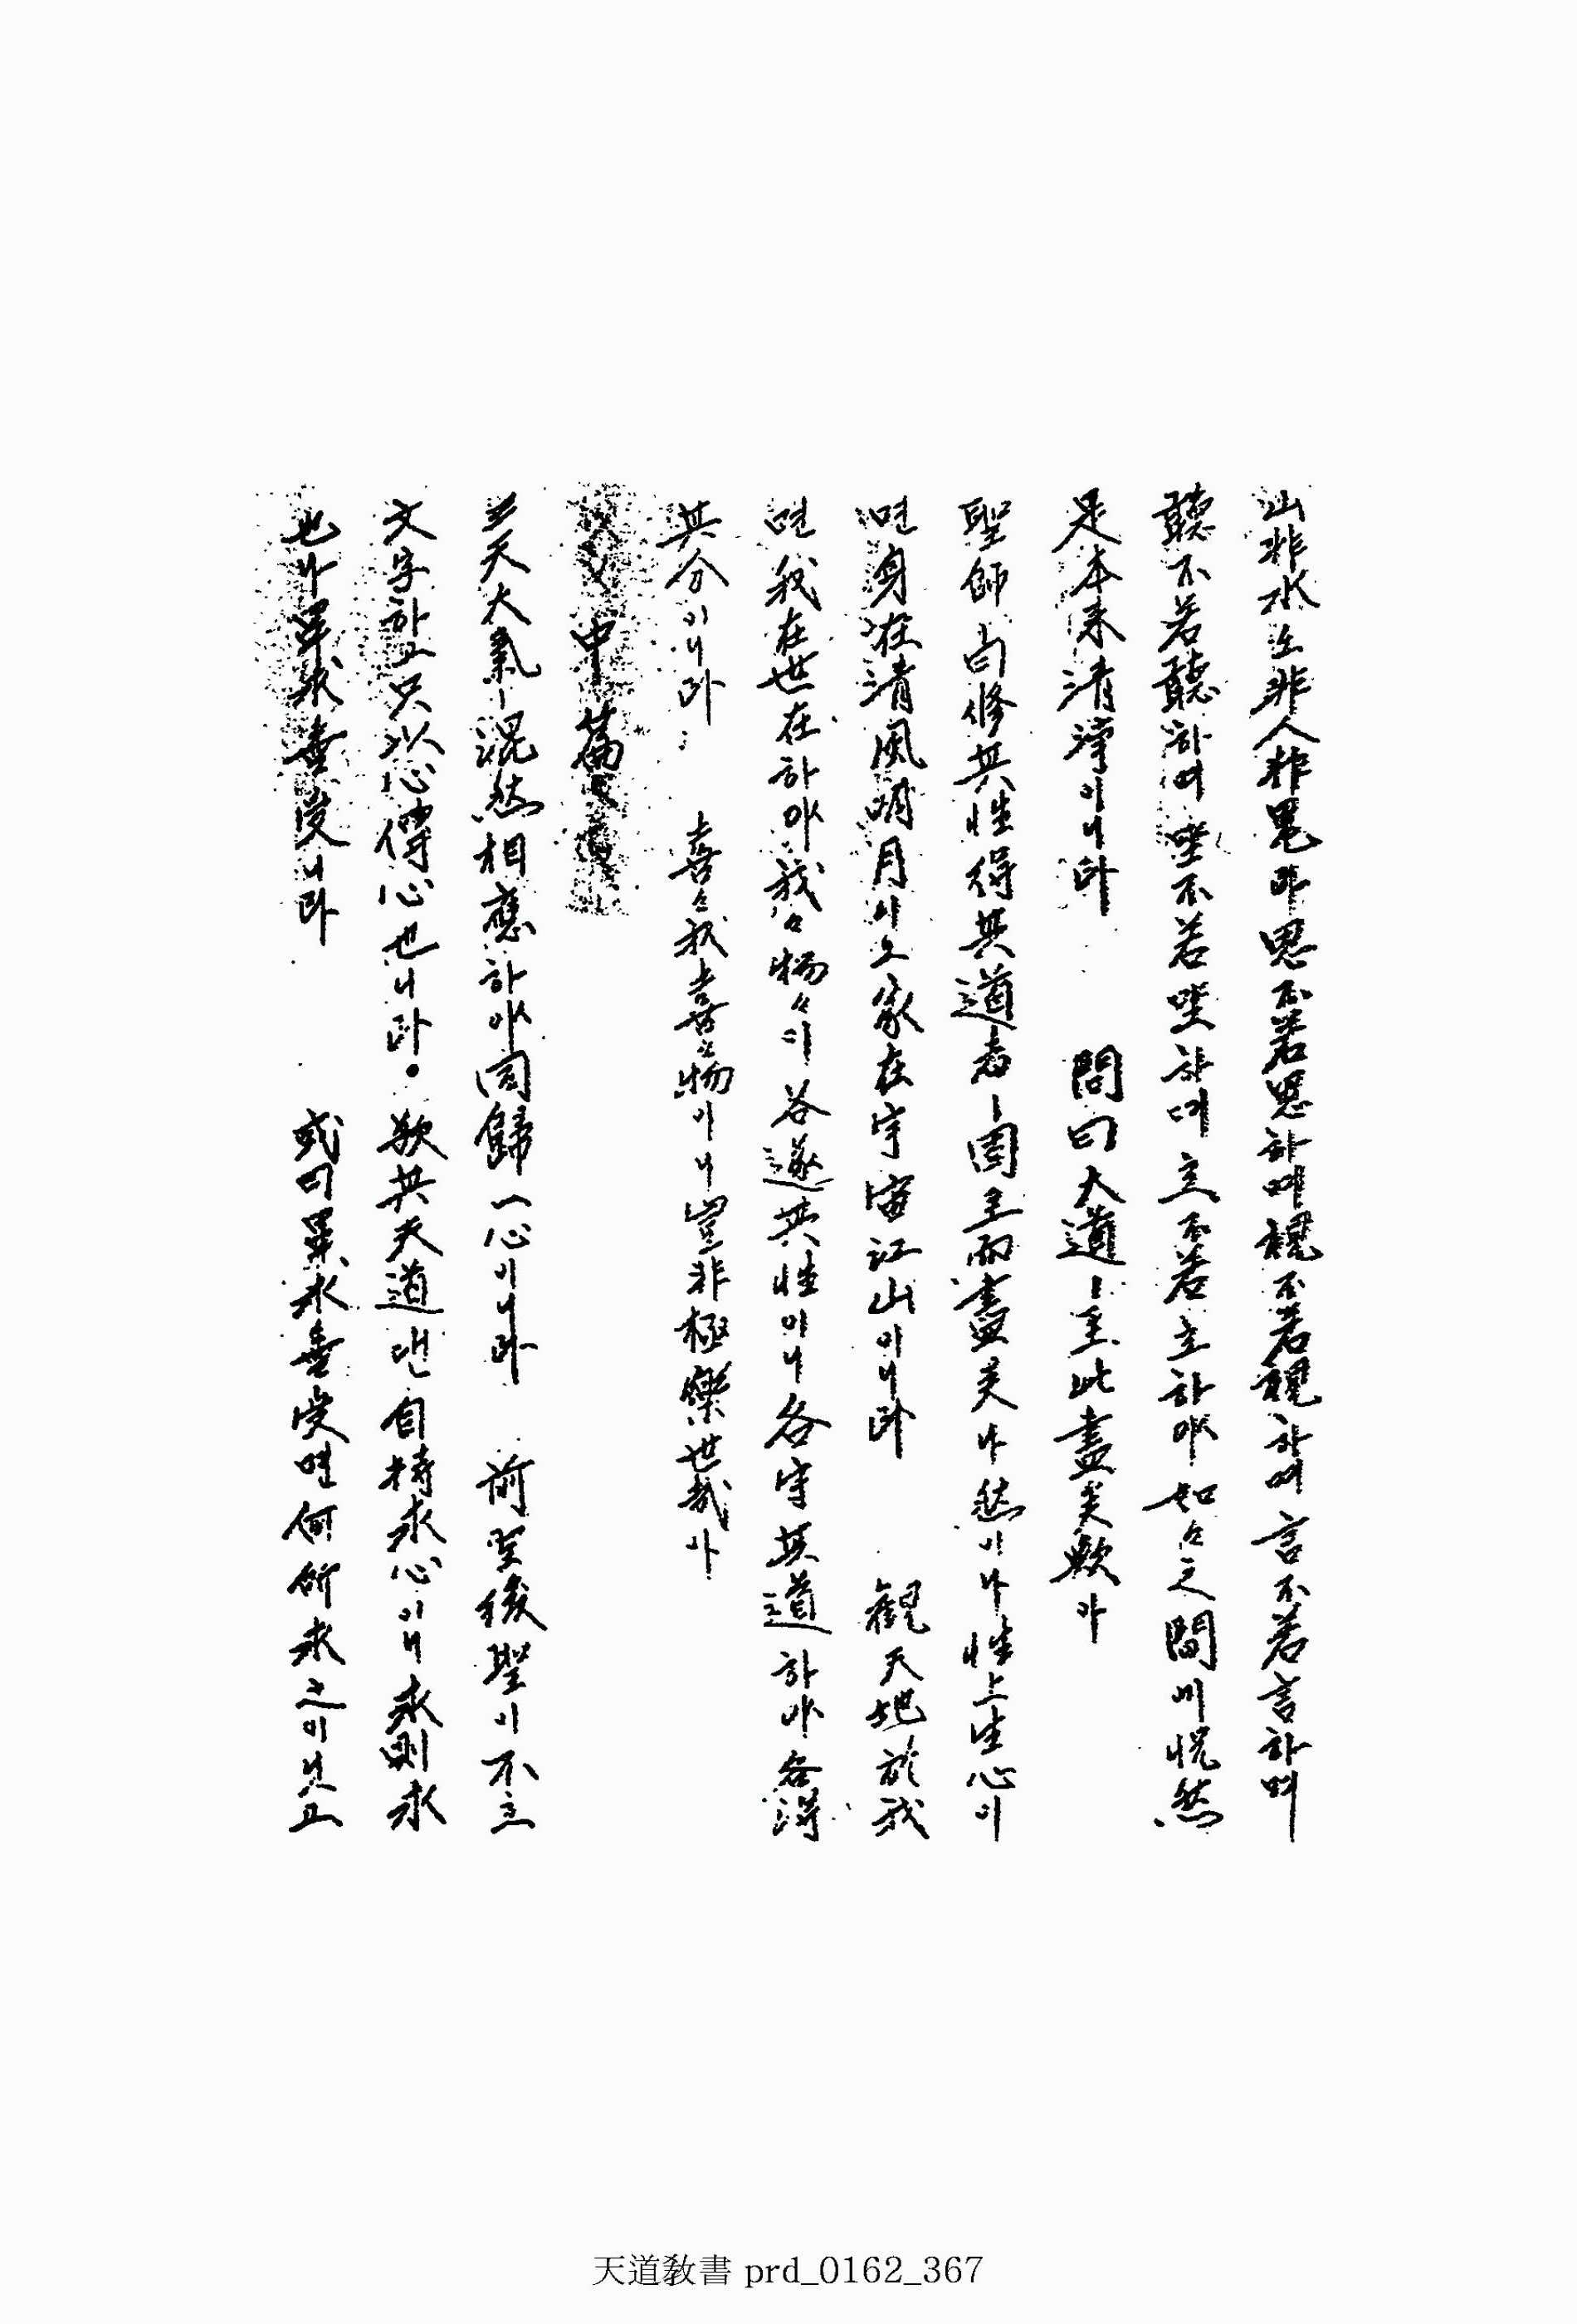 山非水요非人非鬼라思不若思하며視不若視하며言不若言하며
聽不若聽하며坐不若坐하며立不若立하야如如之間에恍然
是本來清淨이니라 問曰大道ㅣ至此盡矣歟아
聖師曰修其性得其道者ㅣ固至而盡矣나然이나性上生心이
면身在清風明月이오家在宇宙江山이니라 觀天地於我
면我在世在하야我々物々이各遂其性이니各守其道하야各得
其分이니라 喜々我喜々物이니豈非極樂世哉아
中篇
并天大氣ㅣ混然相應하야同歸一心이니라 前聖後聖이不立
文字하고只以心傳心也니라 欲其天道댄自持求心이니求則求
也나畢求無受니라 或曰畢求無受면何所求之이닛고
天道教書 prd_0162_367